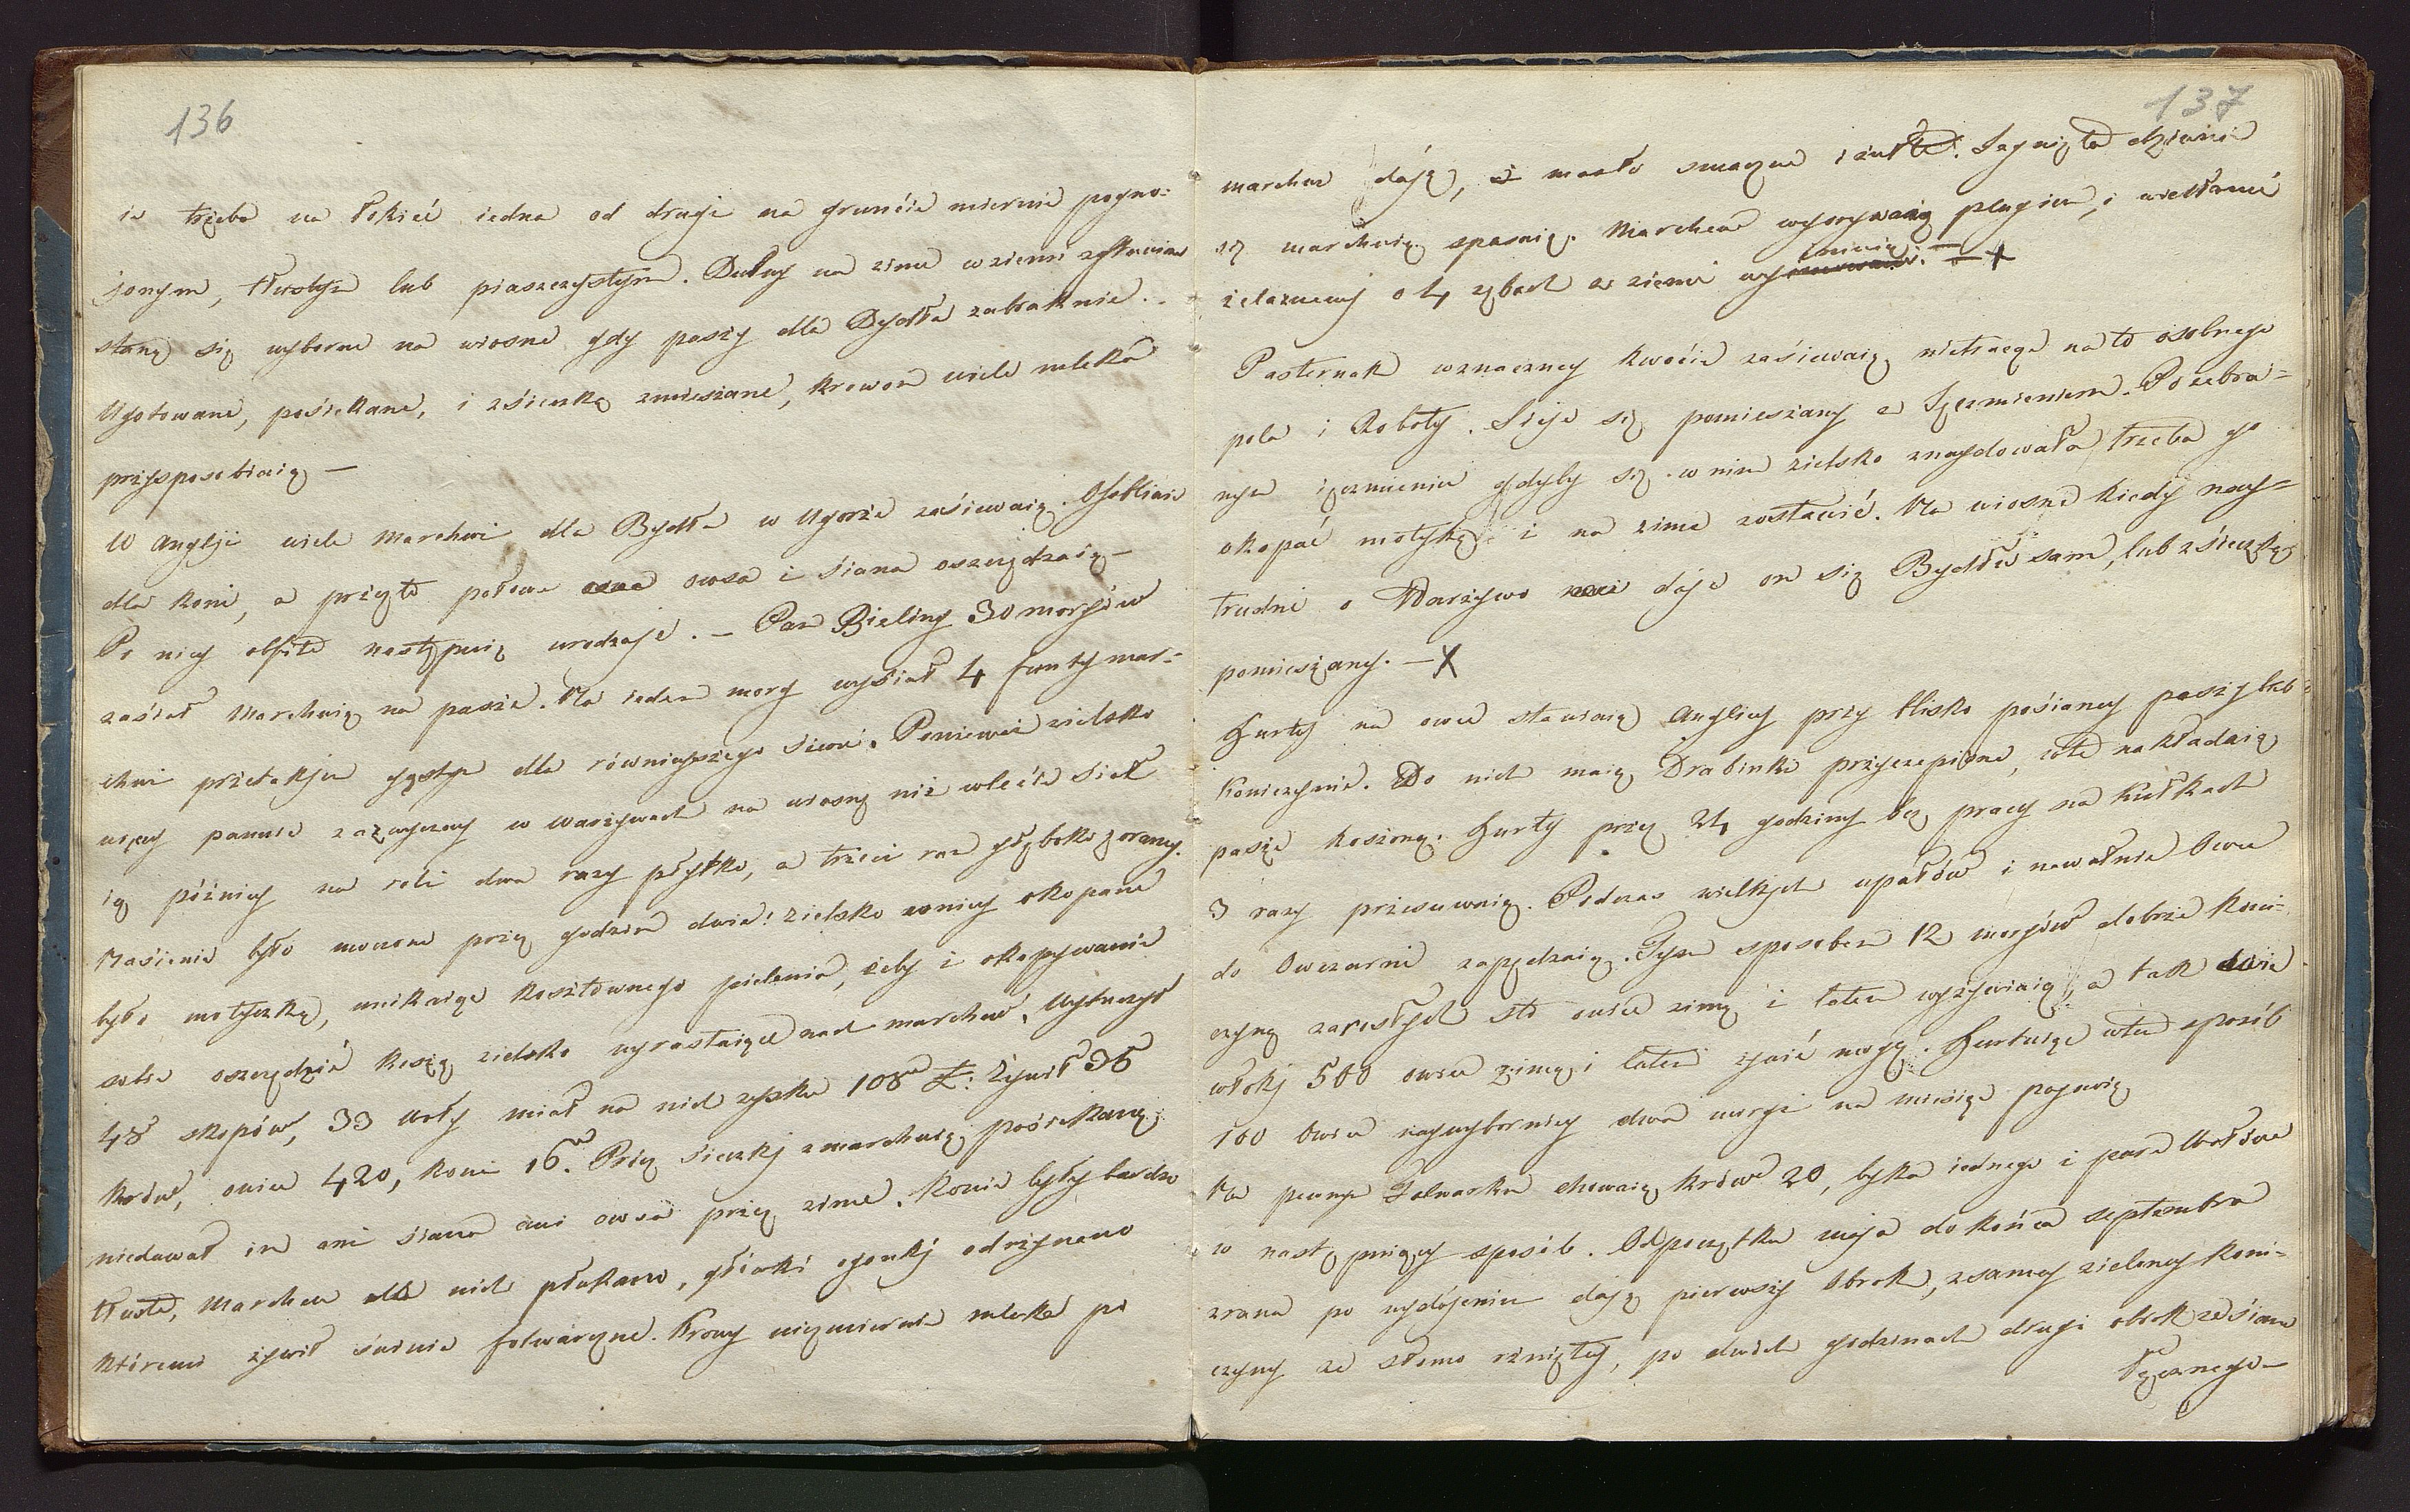 136
ie trzeba na łokieć iedna od drugi na gruncie miernie pogno-
jonym, tłustym lub piaszczystym. Duże na zimę w ziemi
staną się wyborne na wiosnę gdy paszy dla Bydła zabraknie.
Ugotowane, posiekane, i z sieczką zmieszane, krowom wiele mleka
przysposobiaią —
W Anglji wiele Marchwi dla Bydła w Ugorze zasiewaią. Osobliwie
dla koni, a przy tém połowe owsa i siana oszczędzaią —
Po niey obfite następuią urodzaje. — Pan Bieliny 30 morgów
zasiał Marchwią na paszę. Na ieden morg wysiał 4 funty mar-
chwi przetakjem gęstym dla równieyszego siewu. Ponieważ zielsko
więcey panuie zazwyczay w warzywach na wiosnę niż w lecie siał
ią późniey na roli dwa razy płytko, a trzeci raz głęboko zoraney.
Nasienie było moczone przez godzin dwie! zielsko w niey okopane
było motyczką, unikaiąc kosztownego pielenia, żeby i okopywanie
sobie oszczędzić koszą zielsko wyrastaiące nad marchew. Wytuczył
48 skopów, 33 woły miał na nich zysku 108 £: Żywił 36
krów, owiec 420, koni 16. Przy sieczkj z marchwią posiekaną
niedawał im ani siana ani owsa przez zimę. Konie były bardzo
tłuste, Marchew dla nich płukano, główki ogonkj odrzynano
któremi żywił świnie folwarczne. Krowy niezmiernie mleka po
137
marchwi dają, i masło smaczne i żułte. Jagnięta dziwnie
się marchwią spasaią. Marchew wyorywaią plugiem, i widłami
żelaznemi o 4 zębach z ziemi wyimuią. — +
Pasternak w znaczney kwocie zasiewaią nietracąc na to osobnego
pola i Roboty. Sieje się pomieszany z Jęczmieniem. Po zebra-
nym ięczmieniu gdyby się w nim zielsko znaydowało, trzeba go
okopać motyką i na zimę zostawić. Na wiosnę kiedy nay-
trudni o Warzywo daje on się Bydłu sam, lub z sieczką
pomieszany. — X
Hurty na owce stawiaią Anglicy przy blisko posianey paszy lub
koniczynie. Do nich maią Drabinki przyczepione, w te nakładaią
paszę koszoną. Hurty przez 24 godziny bez pracy na kułkach
3 razy przesuwaią. Podczas wielkych upałów i nawałnic Owce
do Owczarni zapędzaią. Tym sposobem 12 morgów dobrze koni-
czyną zarosłych sto owiec zimą i latem wyżywiaią, a tak dwie
włókj 500 owiec zimą i latem żywić mogą. Hurtuiąc w ten sposób
100 Owiec naywyborniey dwa morgi na miesiąc pognoią
Na pewnym Folwarku chowaią krów 20, byka iednego i parę Wołów
w następuiący sposób. Od początku maja do końca septembra
zrana po wydojeniu dają pierwszy Obrok, z samey zieloney koni-
czyny ze słomo rzniętey, po dwóch godzinach drugi obrok ze siana
łącznego —